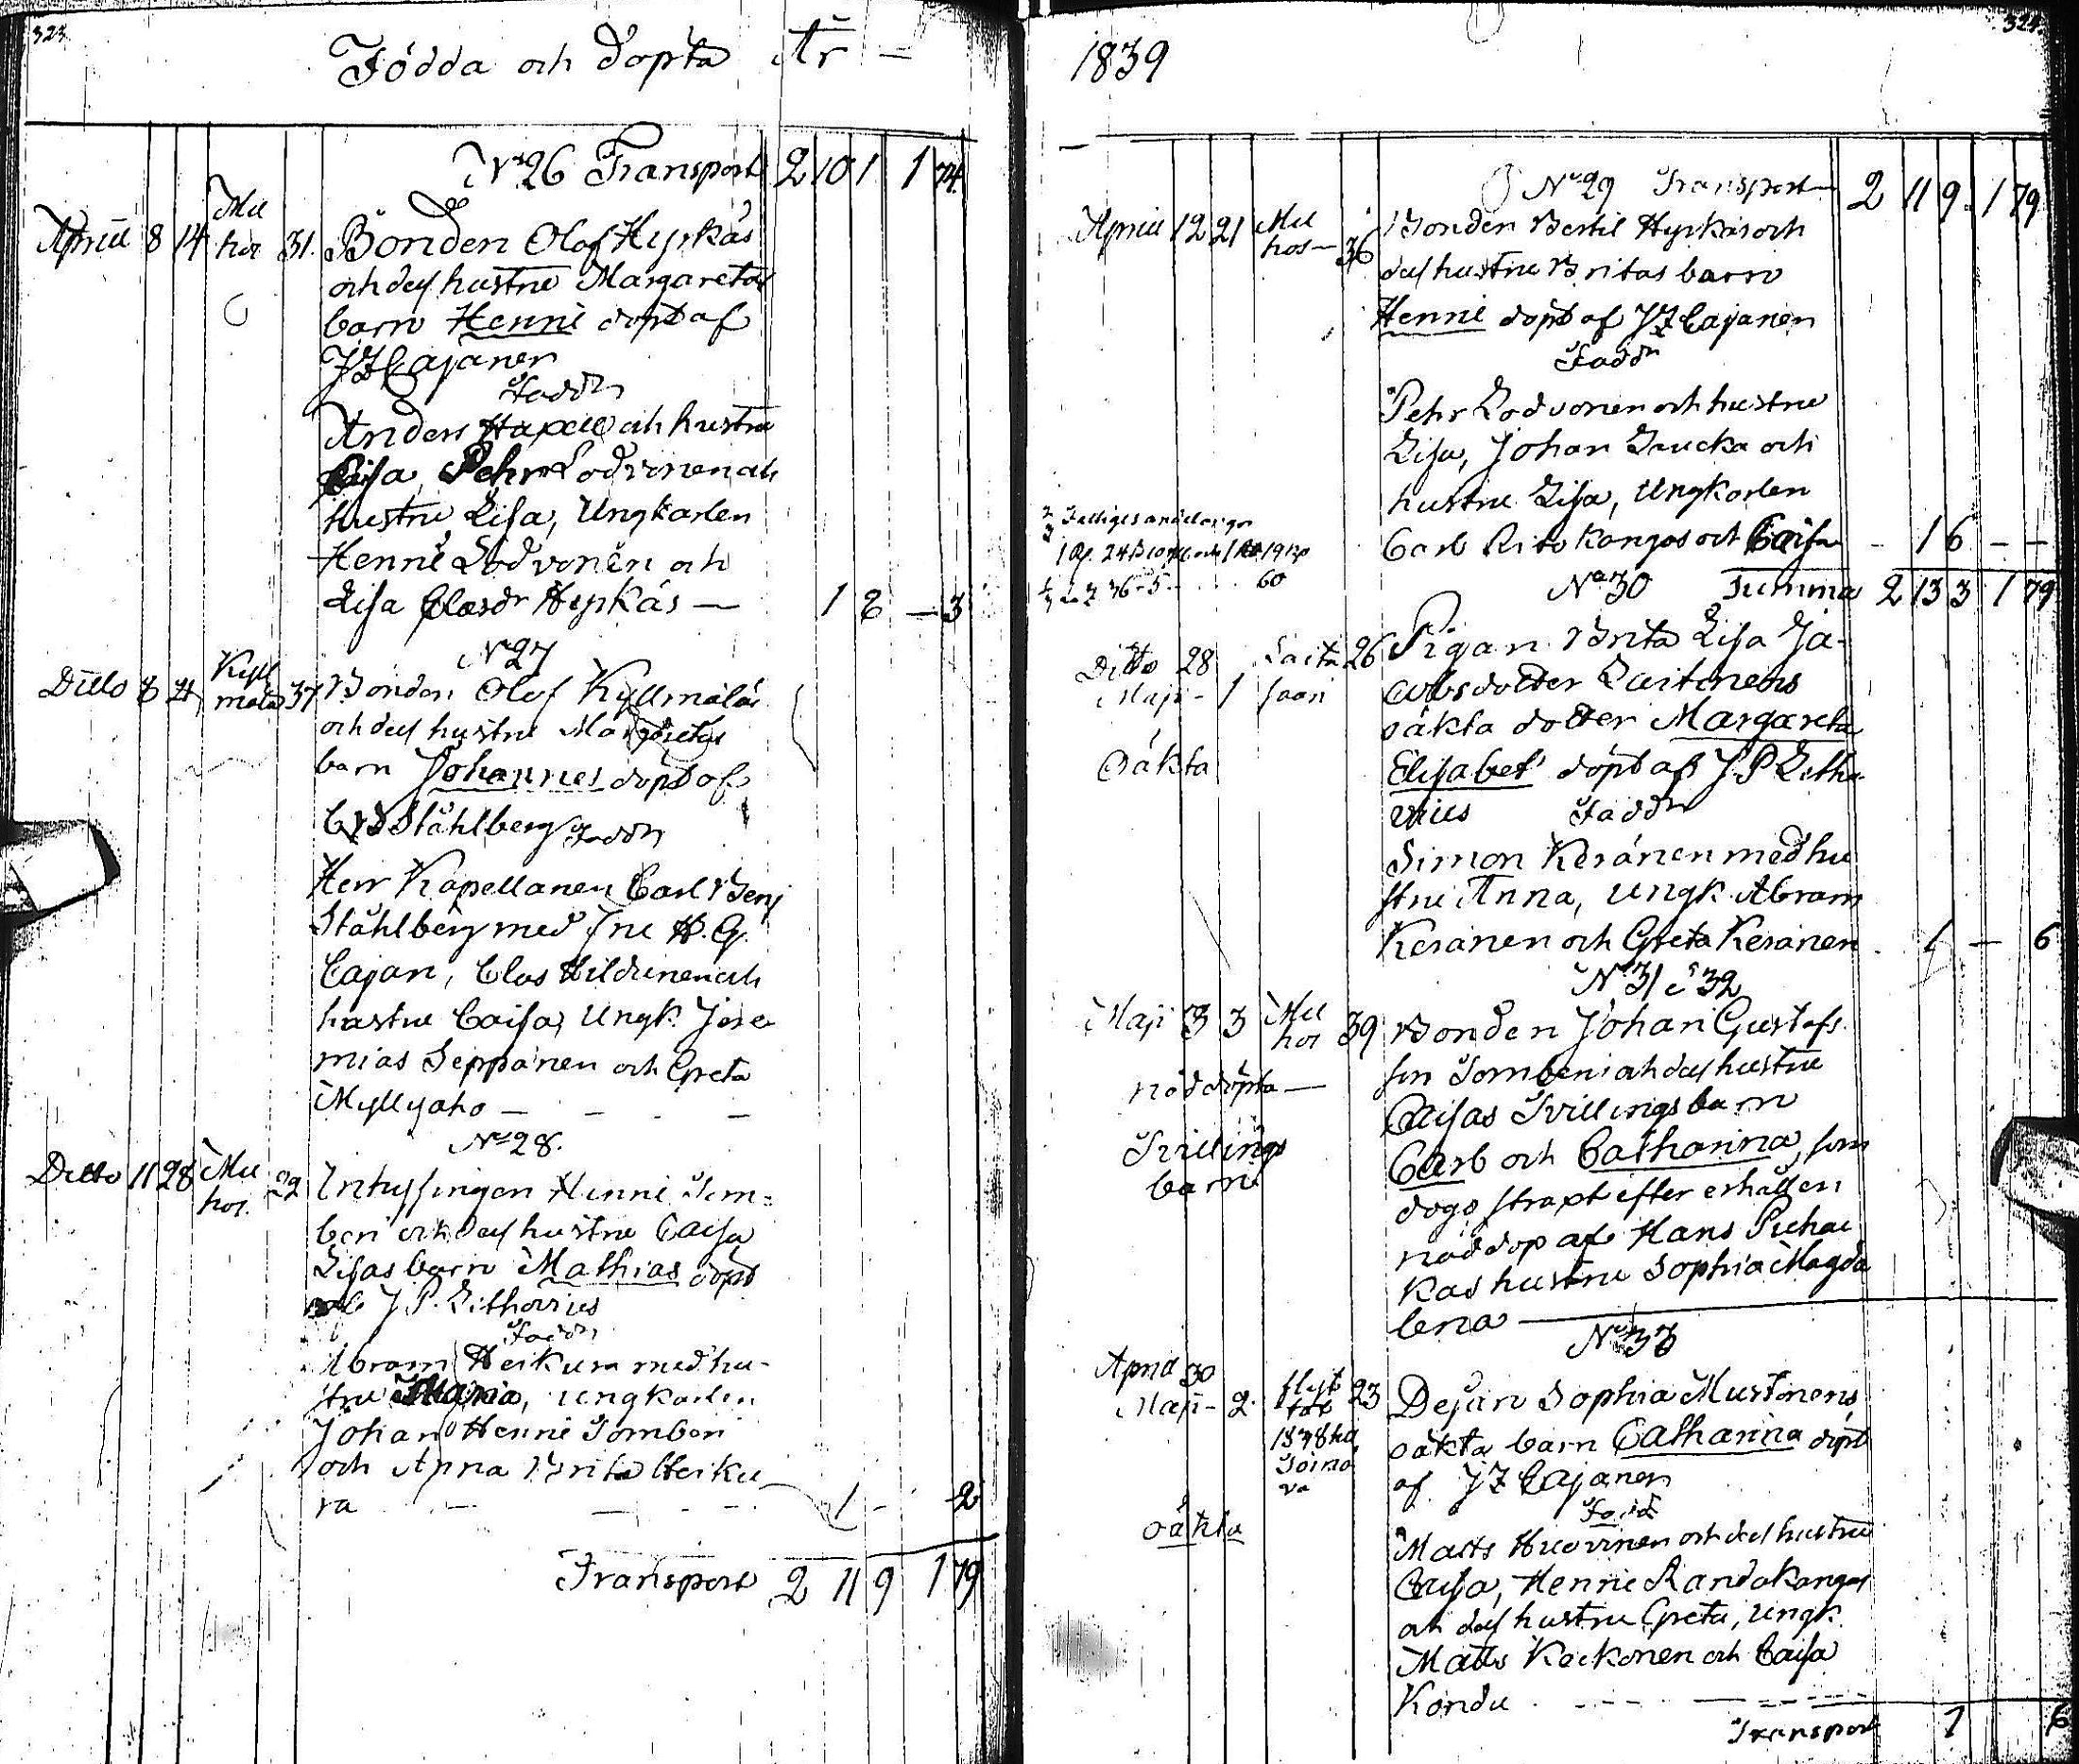 323
Födda och Döpta År —
N 26 Transport 2 10 1 1 74
April 8 14 Mu hos 31. Bonden Olof Hyrkäs
och dess hustru Margaretas
barn Henric döpt af
JF Cajanen
Faddr
Anders Hapell och hustru
Caisa, Pehr Lodvonen och
hustru Lisa, Ungkarlen
Henric Lodvonen och
Lisa Clasdr Hyrkäs — 1 8 — 3
N 27
Ditto 8 Kyll mälä 37 Bonden Olof Kyllmälä
och dess hustru Margretas
barn Johannes döpt af
CB Ståhlberg Faddr
Herr Kapellanen Carl Benj
Ståhlberg med fru H. G.
Cajan, Clas Hildunen och
hustru Caisa, Ungk. Jere
mias Seppänen och Greta
Myllyaho — — — —
No 28.
Ditto 11 28 Mu hos. 22 Inhysingen Henric Tom=
beri och dess hustru Caisa
Lisas barn Mathias döpt
af J. P. Lithovius
Faddr
Abram Heikura med hu-
stru Maria, Ungkarlen
Johan Henric Tomberi
och Anna Brita Heiku
ra — — — 1 - 2
Transport 2 11 9 1 79
324
1839
No 29 Transport — 2 11 9 1 79
April 12 21 Mu hos — 36 Bonden Bertil Hyrkäs och
dess hustru Britas barn
Henric döpt af JF Cajanen
Faddr
Pehr Lodvonen och hustru
Lisa, Johan Laucka och
hustru Lisa, Ungkarlen
Carl Ritokangas och Caisa - 1 6 - -
No 30 Summa 2 13 3 1 79
Ditto 28 Laita 26 Pigan Brita Lisa Ja-
Maji - 1 saari cobsdotter Laitinens
oäkta dotter Margareta
Oäkta Elisabet döpt af J. P. Litho
vius Faddr
Simon Keränen med hu
stru Anna, Ungk. Abram
Keränen och Greta Keränen 1 — 6
No 31 & 32
Maji 3 3 Mu hos 39 Bonden Johan Gustafs
nöddöpta — son Tomberi och dess hustru
Caisas Tvillingsbarn
Tvillings Carl och Catharina, som
barn dogo straxt efter erhållen
nöddop af Hans Puhak
kas hustru Sophia Magda
lena —
No 33
April 30
Maji - 2. 23 Dejan Sophia Mustonens
1838 oäkta barn Catharina döpt
af JF Cajanen
Fadd
oäkta
Matts Huovinen och dess hustru
Caisa, Henric Randakangas
och dess hustru Greta, Ungk.
Matts Keckonen och Caisa
Kondu - - - -
Transport 1 6